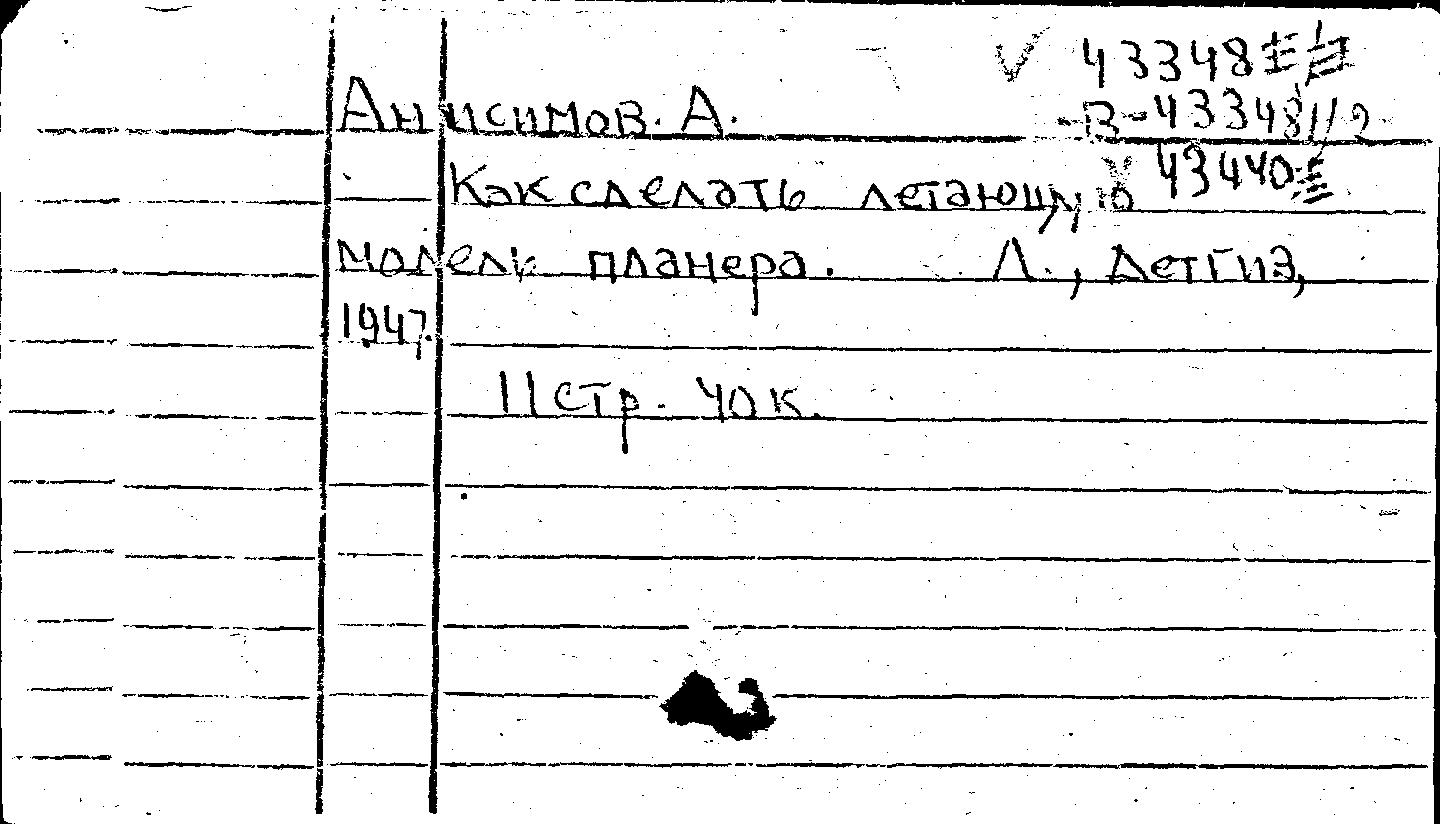 43348
Анисимов. А. В-43348/2
Как сделать летающую 43440
модель планера. Л., Детгиз,
1947.
11 стр. 40 к.